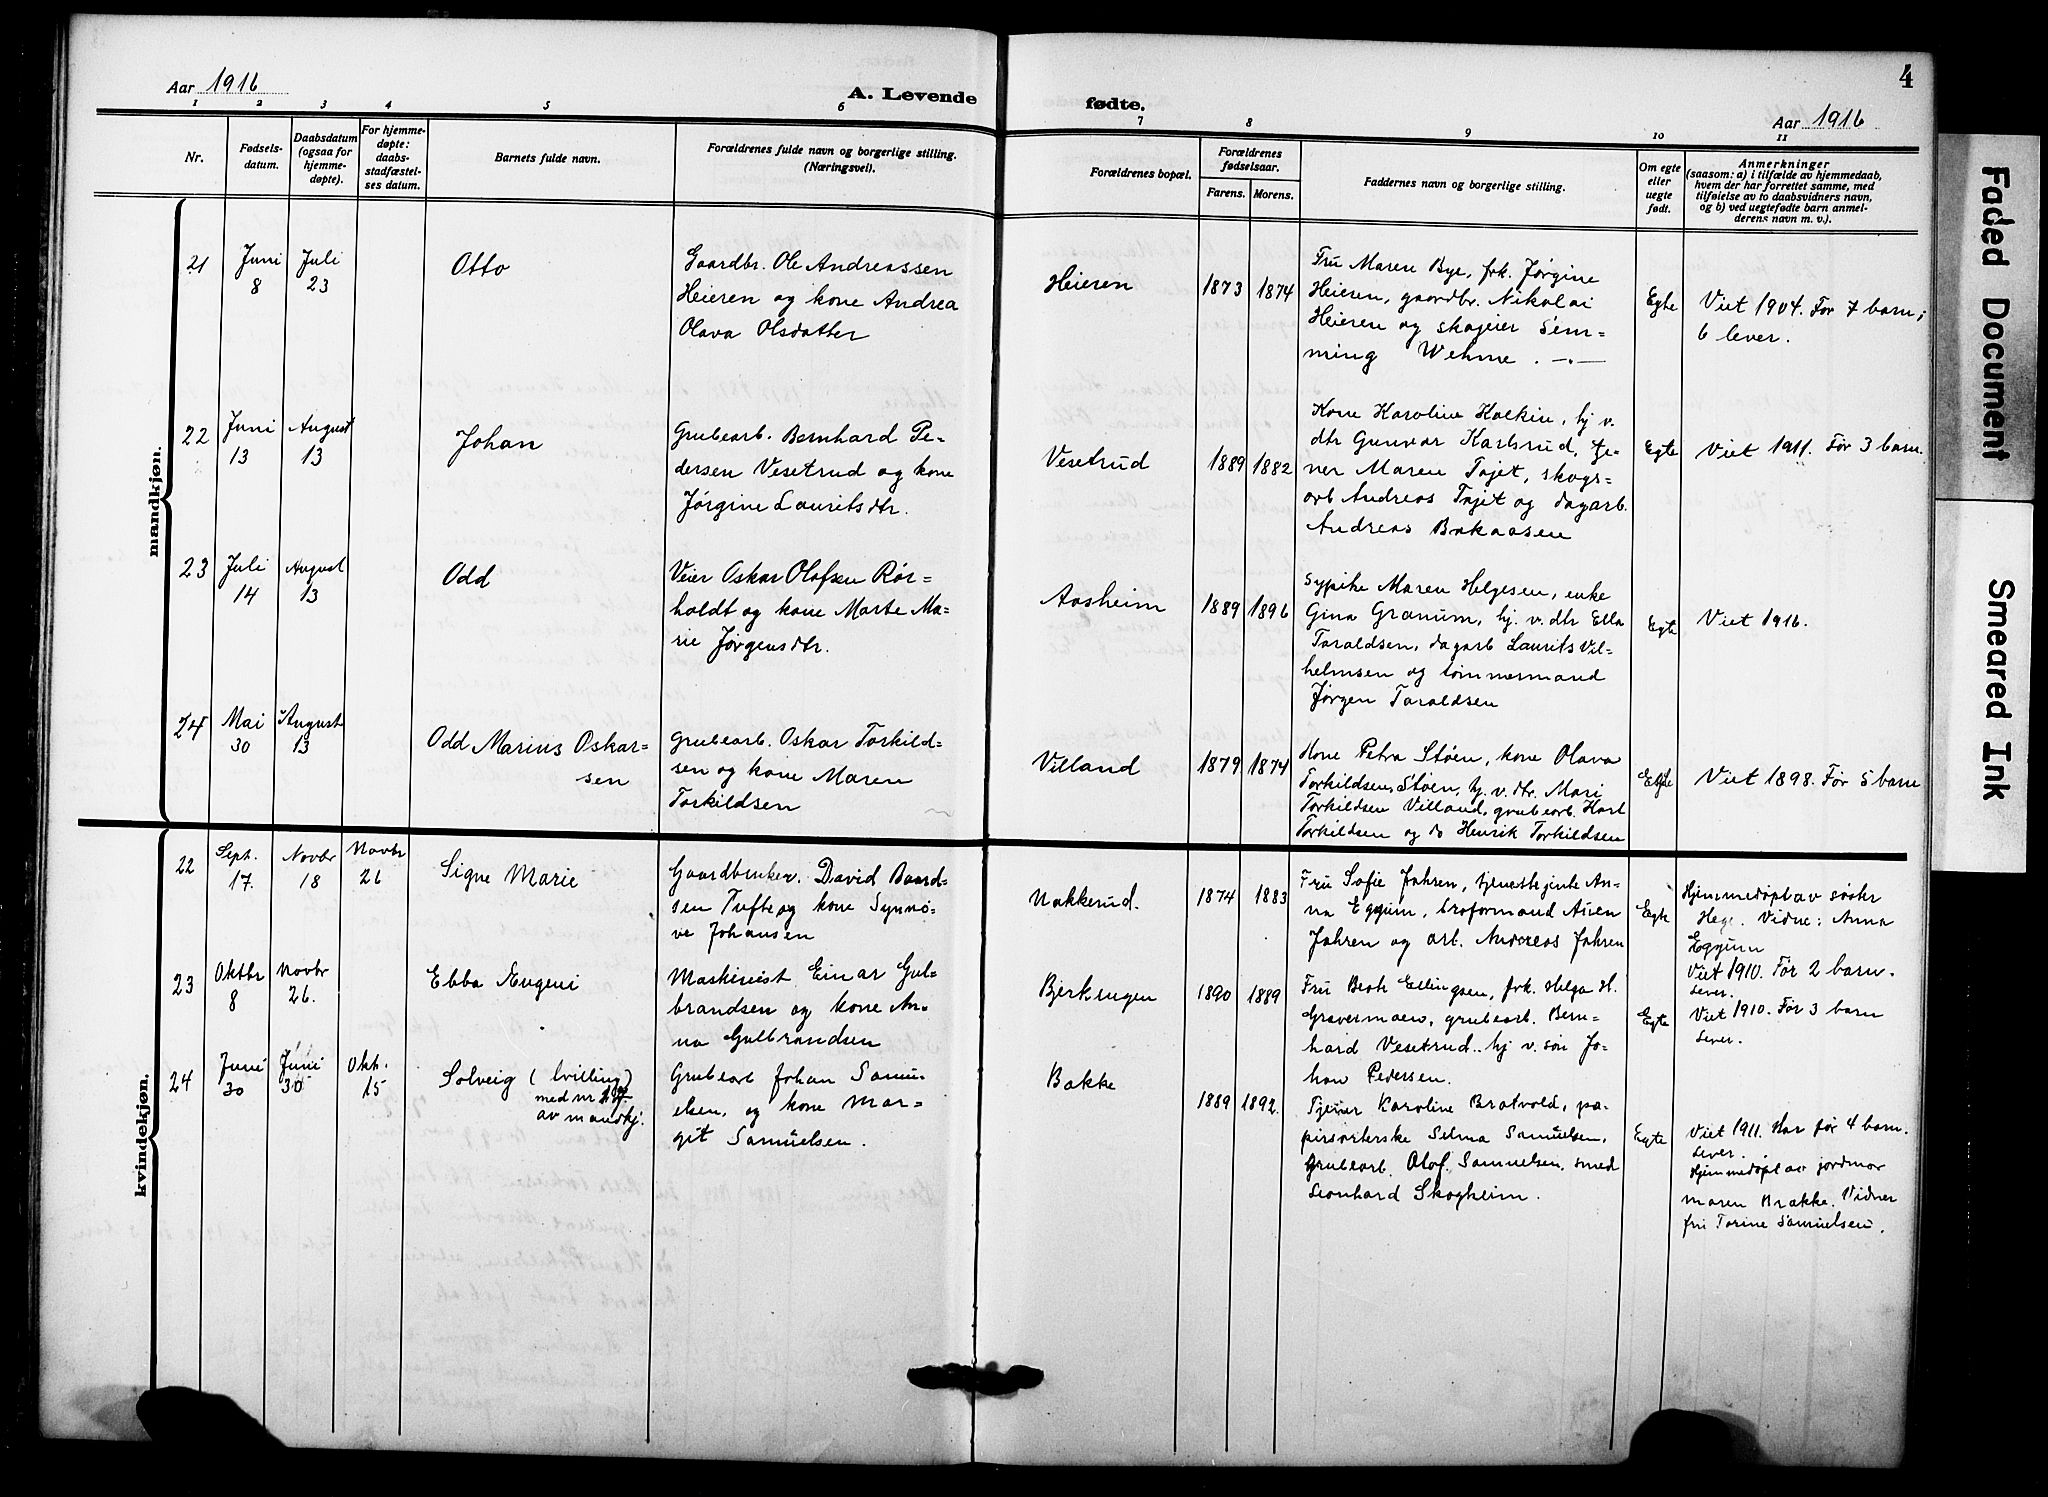 Aar 1916
A. Levende
fødte.
4
Aar 1916
1 2 3 4 5 6 7 8 9 10 11
Nr.
Fødsels-
datum.
Daabsdatum
(ogsaa for
hjemme-
døpte).
For hjemme-
døpte:
daabs-
stadfæstel-
ses datum.
Barnets fulde navn.
Forældrenes fulde navn og borgerlige stilling.
(Næringsvei).
Forældrenes bopæl.
Forældrenes
fødselsaar.
Farens. Morens.
Faddernes navn og borgerlige stilling.
Om egte
eller
uegte
født.
Anmerkninger
(saasom: a) i tilfælde av hjemmedaab,
hvem der har forrettet samme, med
tilføielse av to daabsvidners navn,
og b) ved uegtefødte barn anmel-
derens navn m. v.).
mandkjøn.
21
Juni
8
Juli
23
Otto
Gaardbr. Ole Andreassen
Heieren og kone Andrea
Olava Olsdatter
Heieren
1873 1874
Fru Maren Bye, frk. Jørgine
Heieren, gaardbr. Nikolai
Heieren og skøjeier Sem-
ming Wehme . -.-
Egte
Viet 1904. Før 7 barn;
6 lever.
22
Juni
13
August
13
Johan
Grubearb. Bernhard Pe-
dersen Vesetrud og kone
Jørgine Lauritsdtr.
Vesetrud
1889 1882
Kone Karoline Kolkin, hj v.
dtr Gunvor Karlsrud, tje-
ner Maren Tajet, skogs-
arb Andreas Tajet og dagarb.
Andreas Bakaasen
Egte
Viet 1911. Før 3 barn.
23
Juli
14
August
13
Odd
Veier Oskar Olafsen Rør-
holdt og kone Marte Ma-
rie Jørgensdtr.
Aasheim
1889 1896
Sypike Maren Helgesen, enke
Gina Granum, hj. v. dtr Ella
Taraldsen, dagarb Laurits Vil-
helmsen og tømmermand
Jørgen Taraldsen
Egte
Viet 1916.
24
Mai
30
August
13
Odd Marius Oskar-
sen
Grubearb. Oskar Torkild-
sen og kone Maren
Torkildsen
Villand
1879 1874
Kone Petra Støen, kone Olava
Torkildsen, Støen, hj. v. dtr. Mari
Torkildsen Villand, grubearb. Karl
Torkildsen og do Henrik Torkildsen
Egte
Viet 1898. Før 5 barn
kvindekjøn.
22
Sept.
17.
Novbr
18
Novbr
26
Signe Marie
Gaardbruker. David Baard-
sen Tufte og kone Synnø-
ve Johansen
Nakkerud.
1874 1883
Fru Sofie Jahren, tjenestejente An-
na Eggum, broformand Auen
Jahren og arb. Andreas Jahren
Egte
Hjemmedøpt av søster
Hege. Vidne: Anna
Eggum
Viet 1910. Før 2 barn.
Lever.
23
Oktbr
8
Novbr
26.
Ebba Eugeni
Maskinist Einar Gul-
brandsen og kone An-
na Gulbrandsen
Bjerkingen
1890 1889
Fru Ellingsen, frk. Helga H.
Gravermoen, grubearb. Bern-
hard Vesetrud.. hj v. søn Jo-
han Pedersen.
Egte
Viet 1910. Før 3 barn
Lever.
24
Juni
30
Juni
30
Okt.
15
Solveig (tvilling)
med nr
av mandkj.
Grubearb Johan Samu-
elsen, og kone Mar-
git Samuelsen.
Bakke
1889 1892.
Tjener Karoline Bratvold, pa-
pirsorterske Selma Samuelsen,
Grubearb. Olof. Samuelsen, smed
Leonhard Skogheim.
Egte
Viet 1911. Har før 4 barn.
Lever.
Hjemmedøpt av jordmor
Maren Brakke. Vidner
fru Torine Samuelsen.
Faded Document
Smeared Ink